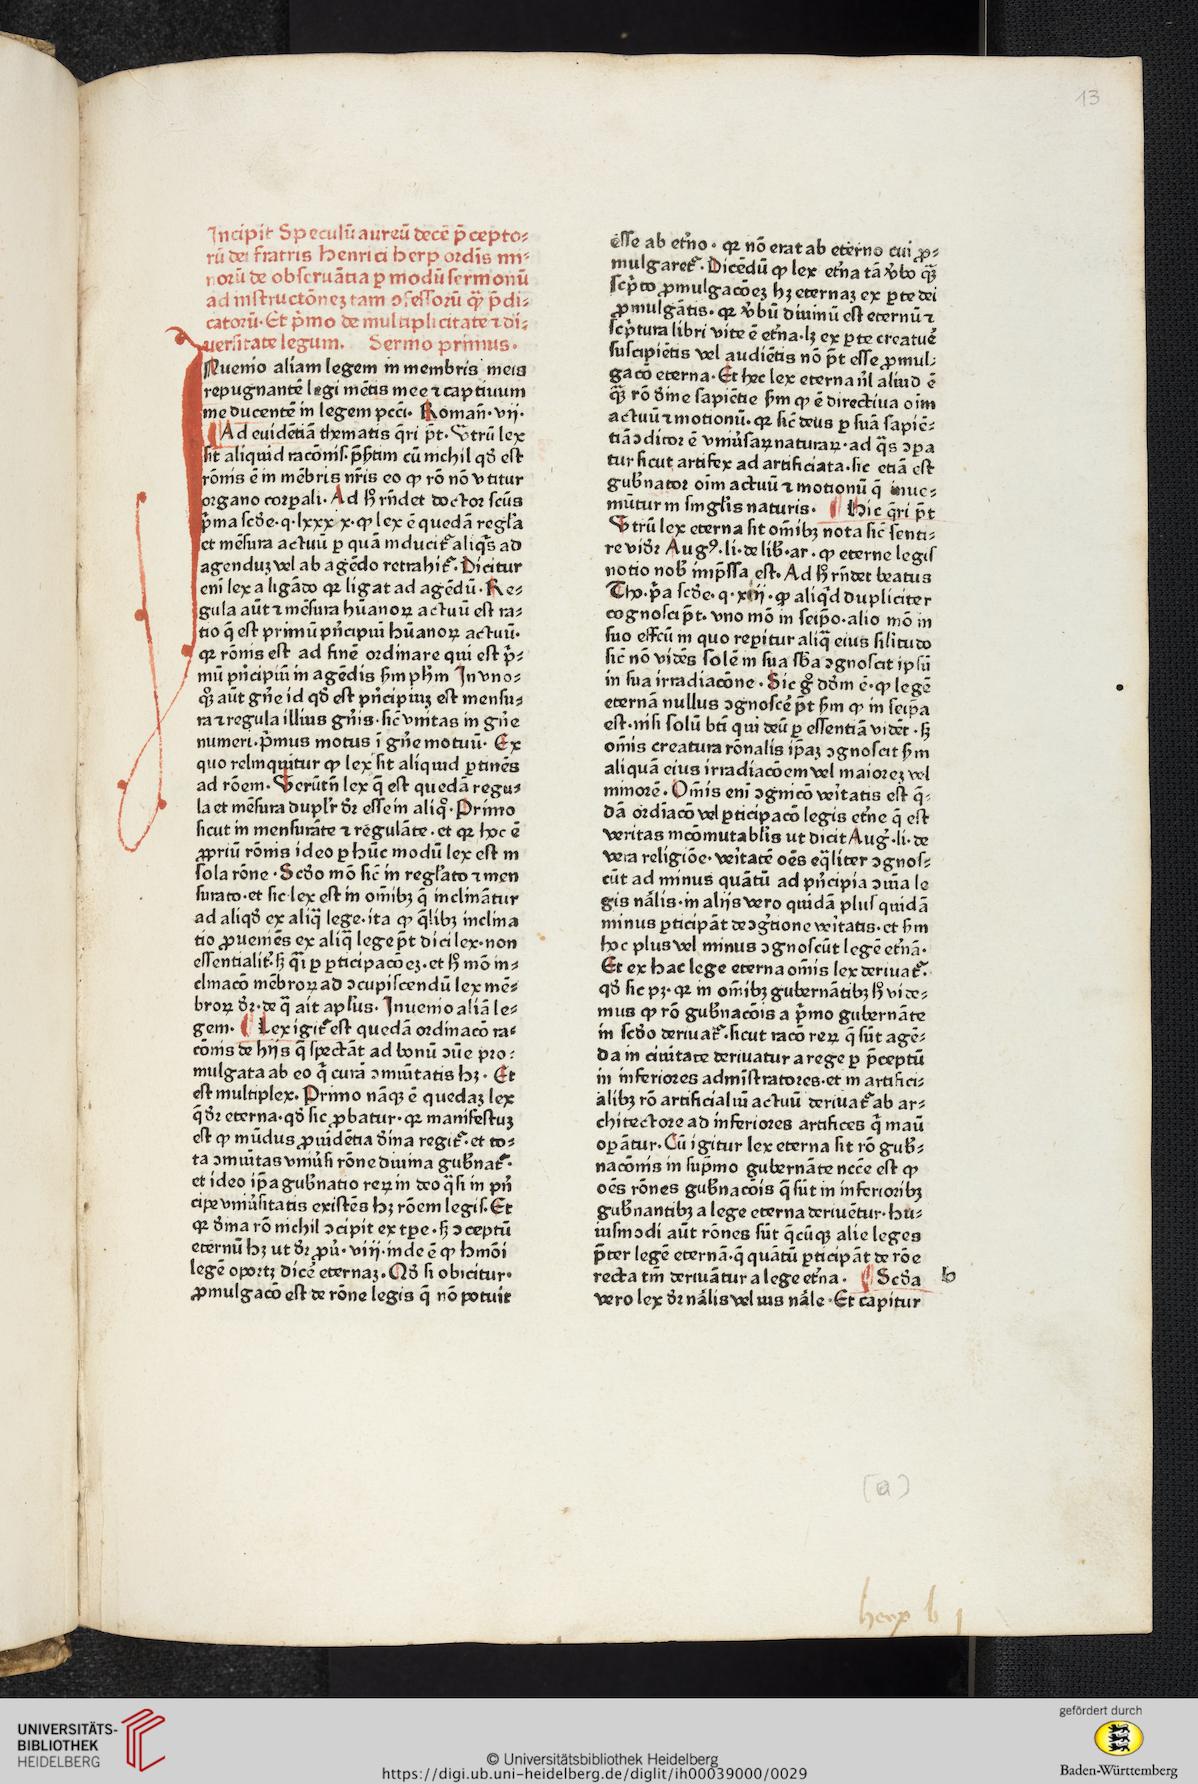 13
Incipit Speculū aureū decē p̄cepto-
rū dei fratris henrici herp ordīs mi-
norū de obseruātia ꝑ modū sermonū
ad instructōnez tam ↄfessorū qͣꝫ p̄di-
catorū. Et pͥmo de multiplicitate ⁊ di-
uersitate legum. Sermo primus.
INuenio aliam legem in membris meis
repugnantē legi mētis mee ⁊ captiuum
me ducentē in legem pcc̄i. Roman̄. vij.
¶ Ad euidētiā thematis q̄ri pt̄. Vtrū lex
sit aliquid racōnis. ph̄tim cū nichil qd̛ est
rōnis ē in mēbris nr̄is eo ꝙ rō nō vtitur
organo corꝑali. Ad hͦ rn̄det doctor scūs
pͥma scd̛e. q. lxxxx. ꝙ lex ē quedā regl̓a
et mēsura actuū ꝑ quā inducit᷑ aliqͥs ad
agenduꝫ vel ab agēdo retrahit᷑. Dicitur
enī lex a ligādo qꝛ ligat ad agēdū. Re-
gula aūt ⁊ mēsura hūanoꝝ actuū est ra-
tio q̄ est primū pn̄cipiū hūanoꝝ actuū.
qꝛ rōnis est ad finē ordinare qui est pͥ-
mū pn̄cipiū in agēdis ẜm ph̄m In vno-
qͦꝫ aūt gn̄e id qd̛ est pn̄cipiuꝫ est mensu-
ra ⁊ regula illius gn̄is. sic̄ vnitas in gn̄e
numeri. pͥmus motus ī gn̄e motuū. Ex
quo relinquitur ꝙ lex sit aliquid ꝑtinēs
ad rōem. Verūtn̄ lex q̄ est quedā regu-
la et mēsura duplr̄ dr̄ esse in aliqͦ. Primo
sicut in mensurāte ⁊ regulāte. et qꝛ hoc ē
ꝓpriū rōnis ideo ꝑ hūc modū lex est in
sola rōne. Scd̛o mō sic̄ in regl̓ato ⁊ men
surato. et sic lex est in om̄ibꝫ q̄ inclināntur
ad aliqd̛ ex aliqͣ lege. ita ꝙ qͣlibꝫ inclina
tio ꝓueniēs ex aliqͣ lege pt̄ dici lex. non
essentialit᷑. sꝫ qͣi ꝑ ꝑticipacōeꝫ. et hͦ mō in-
clinacō mēbroꝝ ad ↄcupiscendū lex mē-
broꝝ dr̄. de qͣ ait apl̓us. Inuenio aliā le-
gem. ¶ Lex igit᷑ est quedā ordinacō ra-
cōnis de hijs q̄ spectāt ad bonū ↄūe pro-
mulgata ab eo qͥ curā ↄmūitatis hꝫ. Et
est multiplex. Primo nāqꝫ ē quedaꝫ lex
q̄ dr̄ eterna. qd̛ sic ꝓbatur. qꝛ manifestuꝫ
est ꝙ mūdus ꝓuidētia diīna regit᷑. et to-
ta ↄmūitas vniūsi rōne diuina gub̄nat᷑.
et ideo ip̄a gub̄natio reꝝ in deo qͣsi in pn̄
cipe vniūsitatis existēs hꝫ rōem legis. Et
qꝛ diīna rō nichil ↄcipit ex tp̄e. sꝫ ↄceptū
eternū hꝫ ut dr̄ ꝓū. viij. inde ē ꝙ hmōi
legē oportꝫ dicē eternaꝫ. Qd̛ si obicitur.
ꝓmulgacō est de rōne legis q̄ nō potuit
esse ab et̓no. qꝛ nō erat ab eterno cui ꝓ-
mulgaret᷑. Dicēdū ꝙ lex et̓na tā v̓bo qͣꝫ
scͥpto ꝓmulgacōeꝫ hꝫ eternaꝫ ex ꝑte dei
ꝓmulgātis. qꝛ v̓bū diuinū est eternū ⁊
scͥptura libri vite ē et̓na. lꝫ ex ꝑte creatuē
suscipiētis vel audiētis nō pt̄ esse ꝓmul-
gacō eterna. Et hec lex eterna nl̄ aliud ē
qͣꝫ rō diīne sapiētie ẜm ꝙ ē directiua oīm
actuū ⁊ motionū. qꝛ sic̄ deus ꝑ suā sapiē-
tiā ↄditor ē vniūsaꝝ naturaꝝ. ad qͣs ↄpa
tur sicut artifex ad artificiata. sic etiā est
gub̄nator oīm actuū ⁊ motionū q̄ inue-
niūtur in singl̓is naturis. ¶ Hic q̄ri pt̄
Vtrū lex eterna sit om̄ibꝫ nota sic̄ senti-
re vidr̄ Augꝰ. li. de lib̄. ar. ꝙ eterne legis
notio nob̄ imp̄ssa est. Ad hͦ rn̄det beatus
Tho. pͥa scd̛e. q. xciij. ꝙ aliqͥd dupliciter
cognosci pt̄. vno mō in seip̄o. alio mō in
suo effc̄u in quo reꝑitur aliqͣ eius sil̓itudo
sic̄ nō vidēs solē in sua sb̄a ↄgnoscit ipsū
in sua irradiacōne. Sic gͦ dd̄m ē. ꝙ legē
eternā nullus ↄgnoscē pt̄ ẜm ꝙ in seip̄a
est. nisi solū bt̄i qui deū ꝑ essentiā vidēt. sꝫ
om̄is creatura rōnalis ip̄aꝫ ↄgnoscit ẜm
aliquā eius irradiacōem vel maioreꝫ vel
minorē. Om̄is enī ↄgnicō veͥtatis est q̄-
dā ordiacō vel ꝑticipacō legis et̓ne q̄ est
veritas incōmutabl̓is ut dicit Augͦ. li. de
vera religiōe. veͥtatē oēs eqͣliter ↄgnos-
cūt ad minus quātū ad pn̄cipia ↄīa le
gis nālis. in alijs vero quidā plus quidā
minus ꝑticipāt de ↄgͥtione veͥtatis. et ẜm
hoc plus vel minus ↄgnoscūt legē et̓nā.
Et ex hac lege eterna om̄is lex deriuat᷑.
qd̛ sic pꝫ. qꝛ in om̄ibꝫ gubernātibꝫ hͦ vide-
mus ꝙ rō gub̄nacōis a pͥmo gubernāte
in scd̛o deriuat᷑. sicut racō reꝝ q̄ sūt agē-
da in ciuitate deriuatur a rege ꝑ p̄ceptū
in inferiores admīstratores. et in artifici-
alibꝫ rō artificialiū actuū deriuat᷑ ab ar-
chitectore ad inferiores artifices qͥ manū
oꝑātur. Cū igitur lex eterna sit rō gub̄-
nacōnis in sup̄mo gubernāte ncc̄e est ꝙ
oēs rōnes gub̄nacōis q̄ sūt in inferioribꝫ
gub̄nantibꝫ a lege eterna deriuētur. hu-
iusmodi aūt rōnes sūt q̄cūqꝫ alie leges
p̄ter legē eternā. q̄ quātū ꝑticipāt de rōe
recta tm̄ deriuātur a lege et̓na. ¶ Scd̛a b
vero lex dr̄ nālis vel ius nāle. Et capitur
[a]
herp b j
UNIVERSITÄTS-
BIBLIOTHEK
HEIDELBERG
© Universitätsbibliothek Heidelberg
https://digi.ub.uni-heidelberg.de/diglit/ih00039000/0029
gefördert durch
Baden-Württemberg